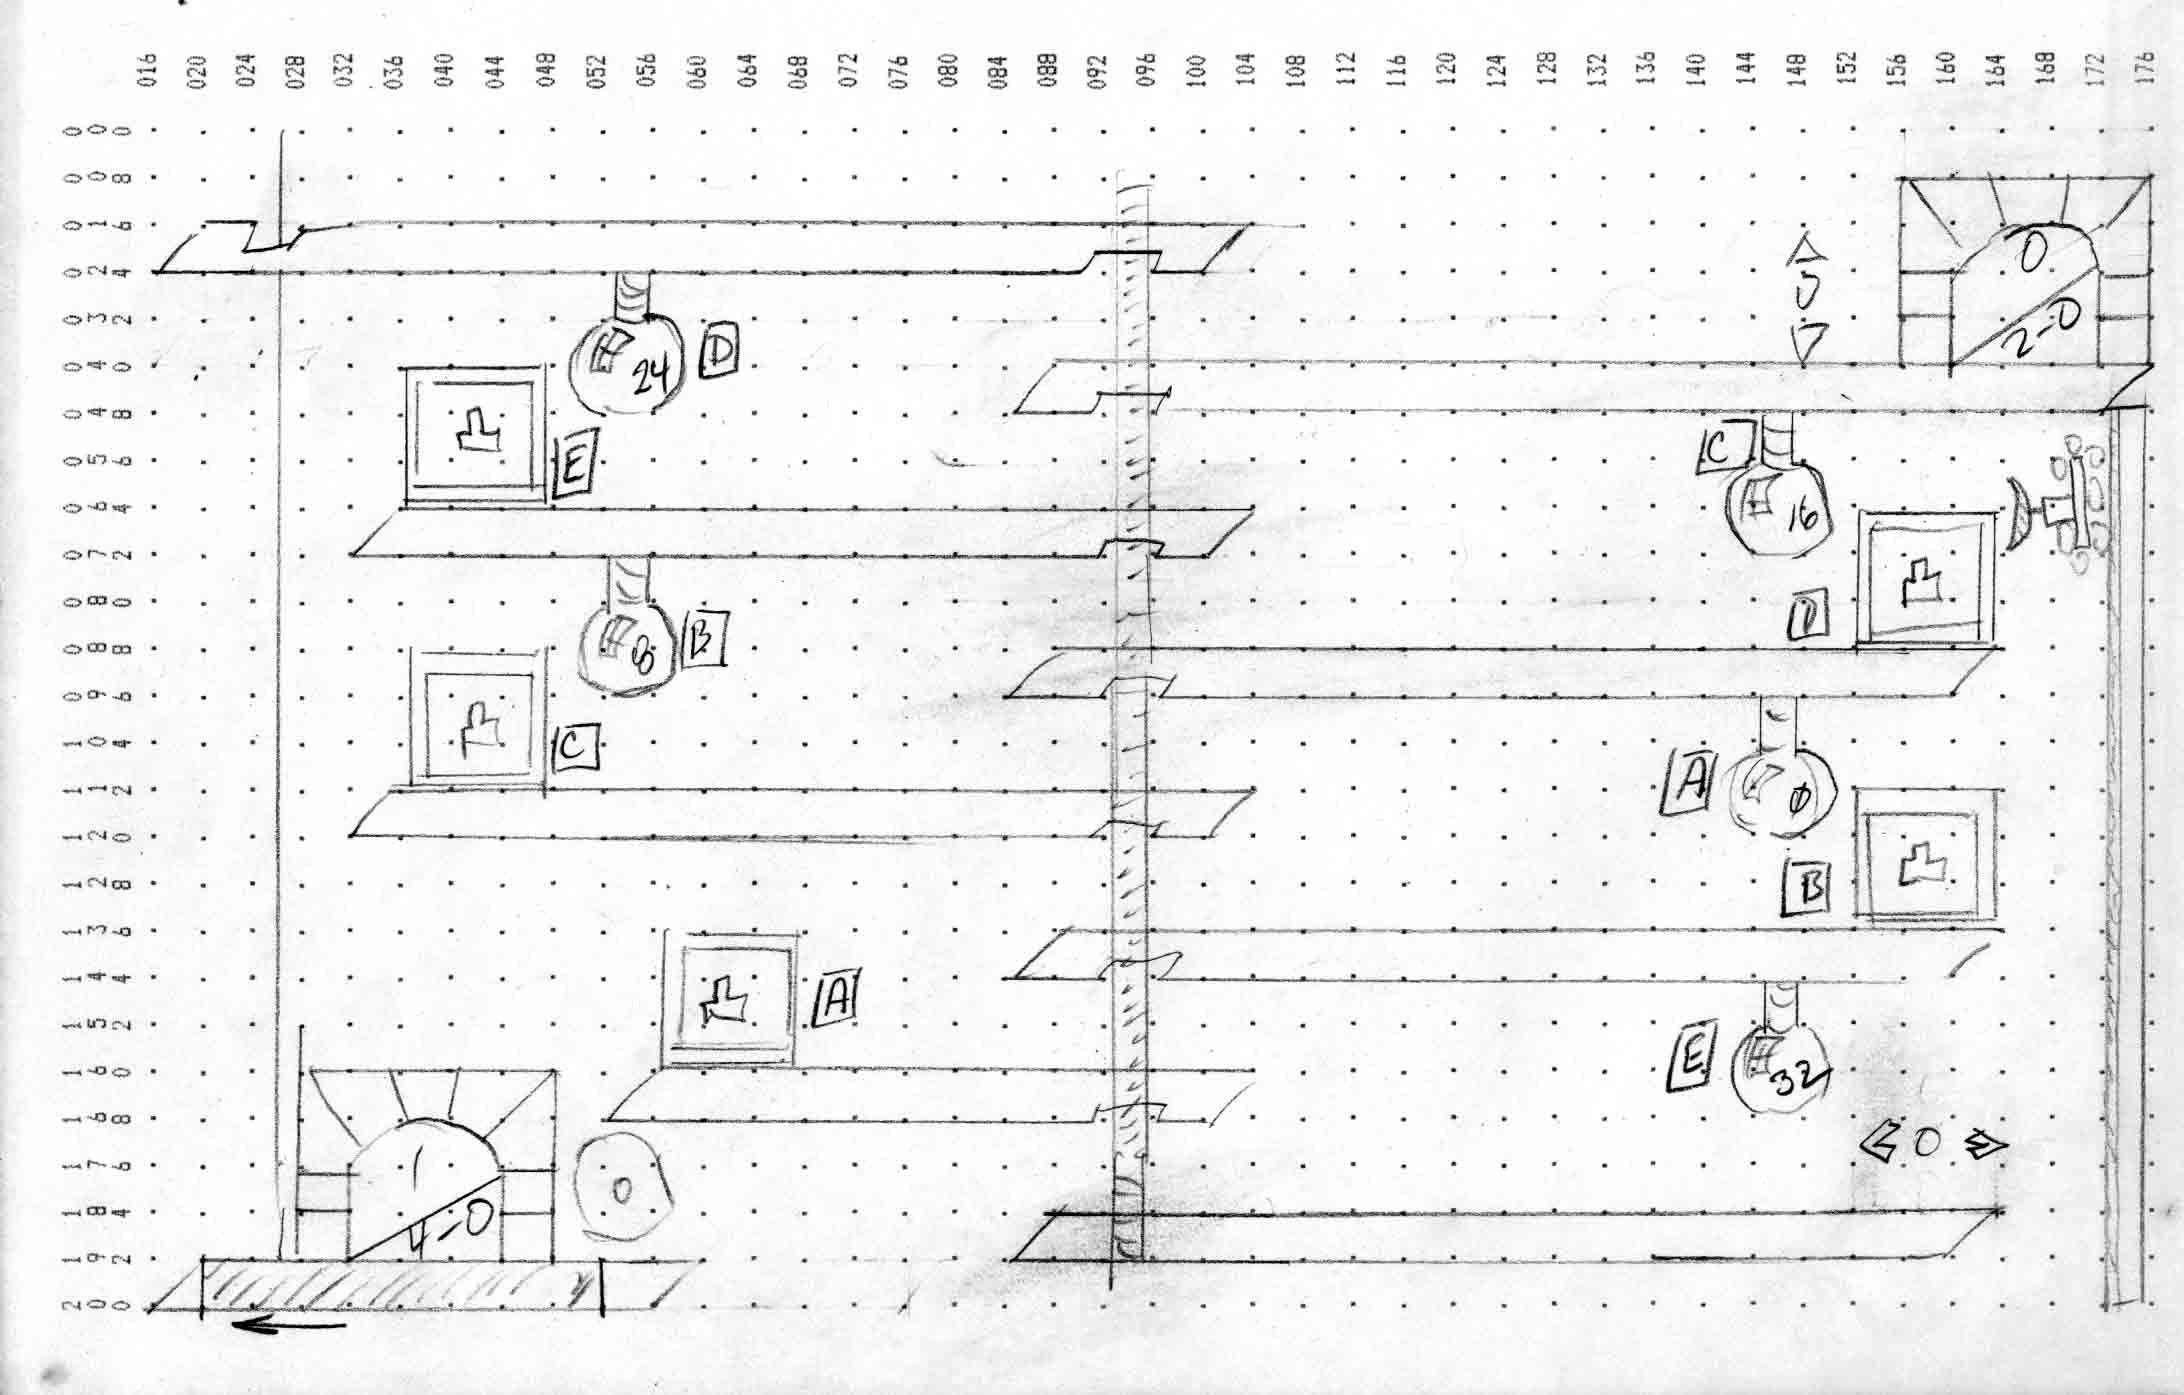 016 020 024 028 032 036 040 044 048 052 056 060 064 068 072 076 080 084 088 092 096 100 104 108 112 116 120 124 128 132 136 140 144 148 152 156 160 164 168 172 176
000
008
016
024
032
040
048
056
064
072
080
088
096
104
112
120
128
136
144
152
160
168
176
184
192
200
0
2-0
0
24
D
E
C
16
D
8
B
C
A
0
B
A
E
32
0
1
4-0
0